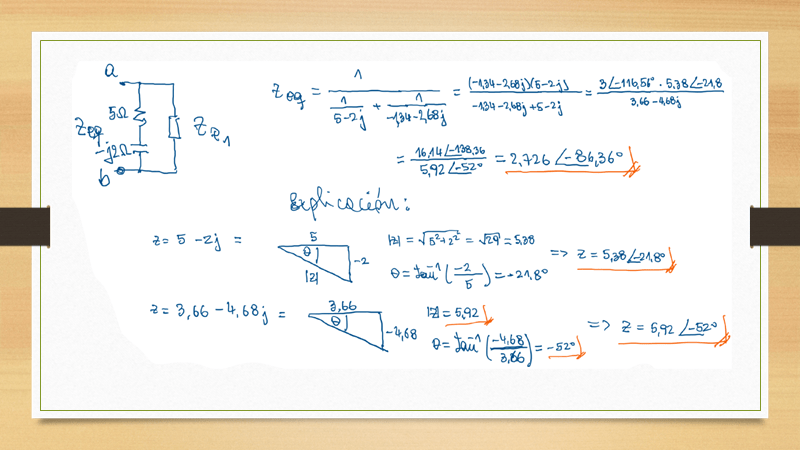 a
5Ω
Zeq
-j2Ω
b
Z_R1
Zeq = 1 / (1/(5-2j) + 1/(-1,34-2,68j)) = (-1,34-2,68j)(5-2j) / (-1,34-2,68j+5-2j) = 3∠-116,56° · 5,38∠-21,8 / (3,66-4,68j)
= 16,14∠-138,36 / 5,92∠-52° = 2,726∠-86,36°
Explicación:
z = 5 -2j =
5
θ
|z|
-2
|z| = √(5²+2²) = √29 = 5,38
θ = tan⁻¹(-2/5) = -21,8°
=> z = 5,38∠-21,8°
z = 3,66 -4,68j =
3,66
θ
-4,68
|z| = 5,92
θ = tan⁻¹(-4,68/3,66) = -52°
=> z = 5,92∠-52°